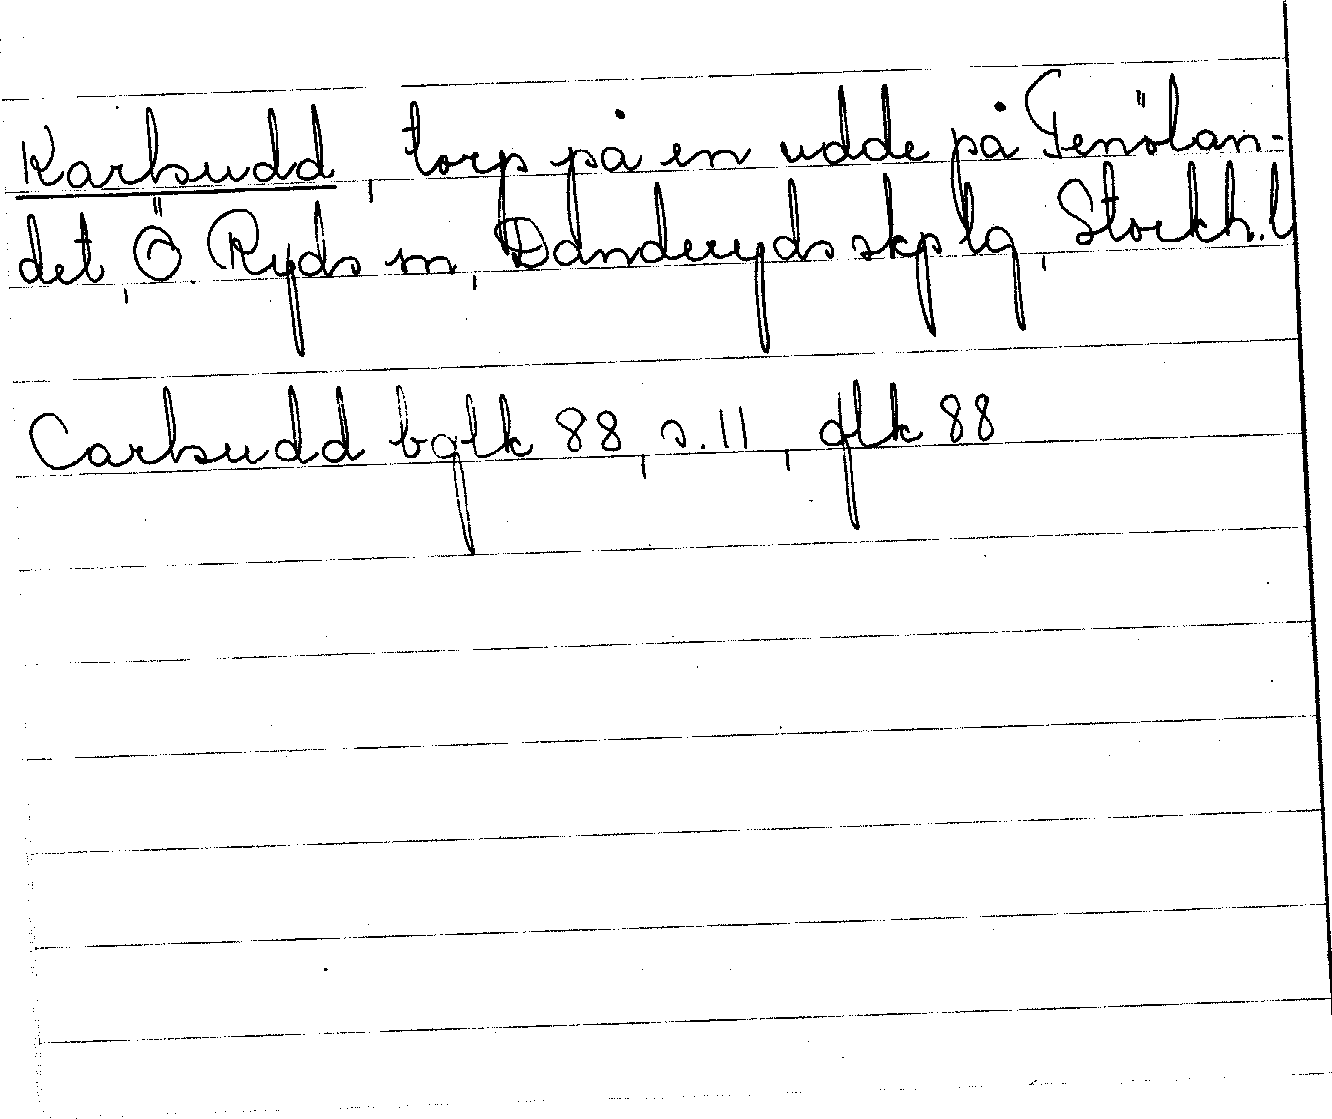 Karlsudd, torp på en udde på Tenölan-
det, Ö. Ryds sn, Danderyds skplg, Stockh. l
Carlsudd bglk 88, s. 11, glk 88